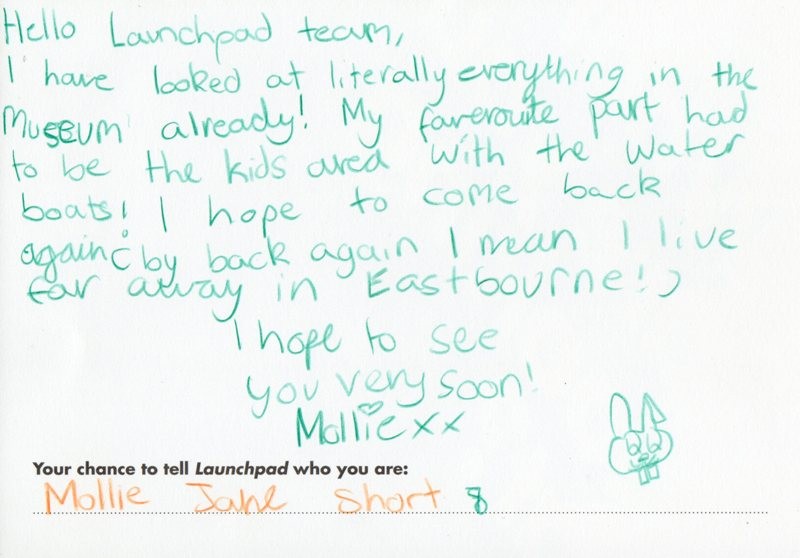 Hello Launchpad team,
I have looked at literally everything in the
Museum already! My faveroute part had
to be the kids area with the water
boats! I hope to come back
again (by back again I mean I live
far away in Eastbourne!)
I hope to see
you very soon!
Mollie xx
Your chance to tell Launchpad who you are:
Mollie Jane Short 8